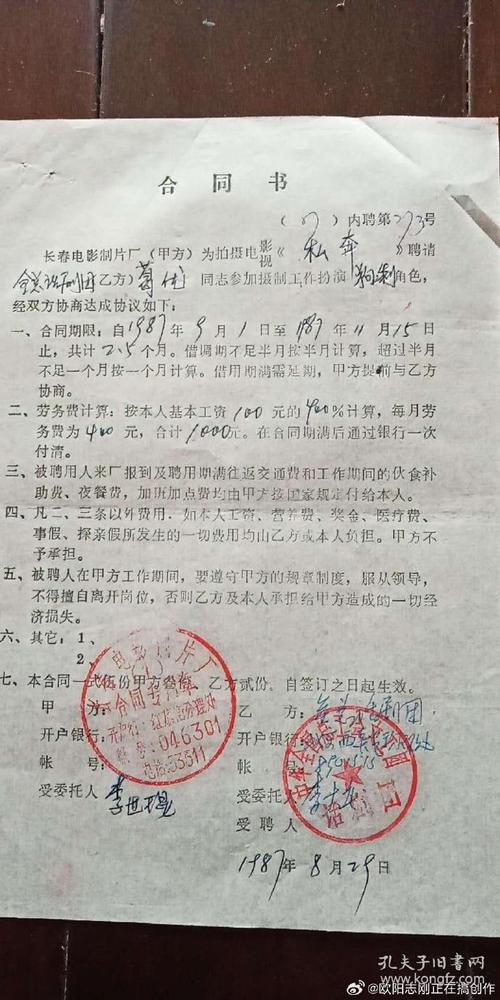 合同书
(87)内聘第273号
长春电影制片厂(甲方)为拍摄电影视《私奔》聘请
全总话剧团乙方)葛优同志参加摄制工作扮演 角色,
经双方协商达成协议如下:
一、合同期限:自1987年9月1日至1987年11月15日
止,共计2.5个月。借调期不足半月按半月计算,超过半月
不足一个月按一个月计算。借用期满需延期,甲方提前与乙方
协商。
二、劳务费计算:按本人基本工资100元的400%计算,每月劳
务费为400元,合计1000元。在合同期满后通过银行一次
付清。
三、被聘用人来厂报到及聘用期满往返交通费和工作期间的伙食补
助费、夜餐费,加班加点费均由甲方按国家规定付给本人。
四、凡二、三条以外费用,如本人工资、营养费、奖金、医疗费、
事假、探亲假所发生的一切费用均由乙方或本人负担。甲方不
予承担。
五、被聘人在甲方工作期间,要遵守甲方的规章制度,服从领导,
不得擅自离开岗位,否则乙方及本人承担给甲方造成的一切经
济损失。
六、其它:1、
2、
七、本合同一式伍份甲方叁份,乙方贰份,自签订之日起生效。
甲方:
乙方:全总话剧团
开户银行:
开户银行:
帐号:
帐号:
受委托人
受委托人
受聘人
电影制片厂
合同专用章
开户行:红旗街办理处
帐号:046301
电话:53311
话剧团
1987年8月29日
孔夫子旧书网
@欧阳志刚正在搞创作